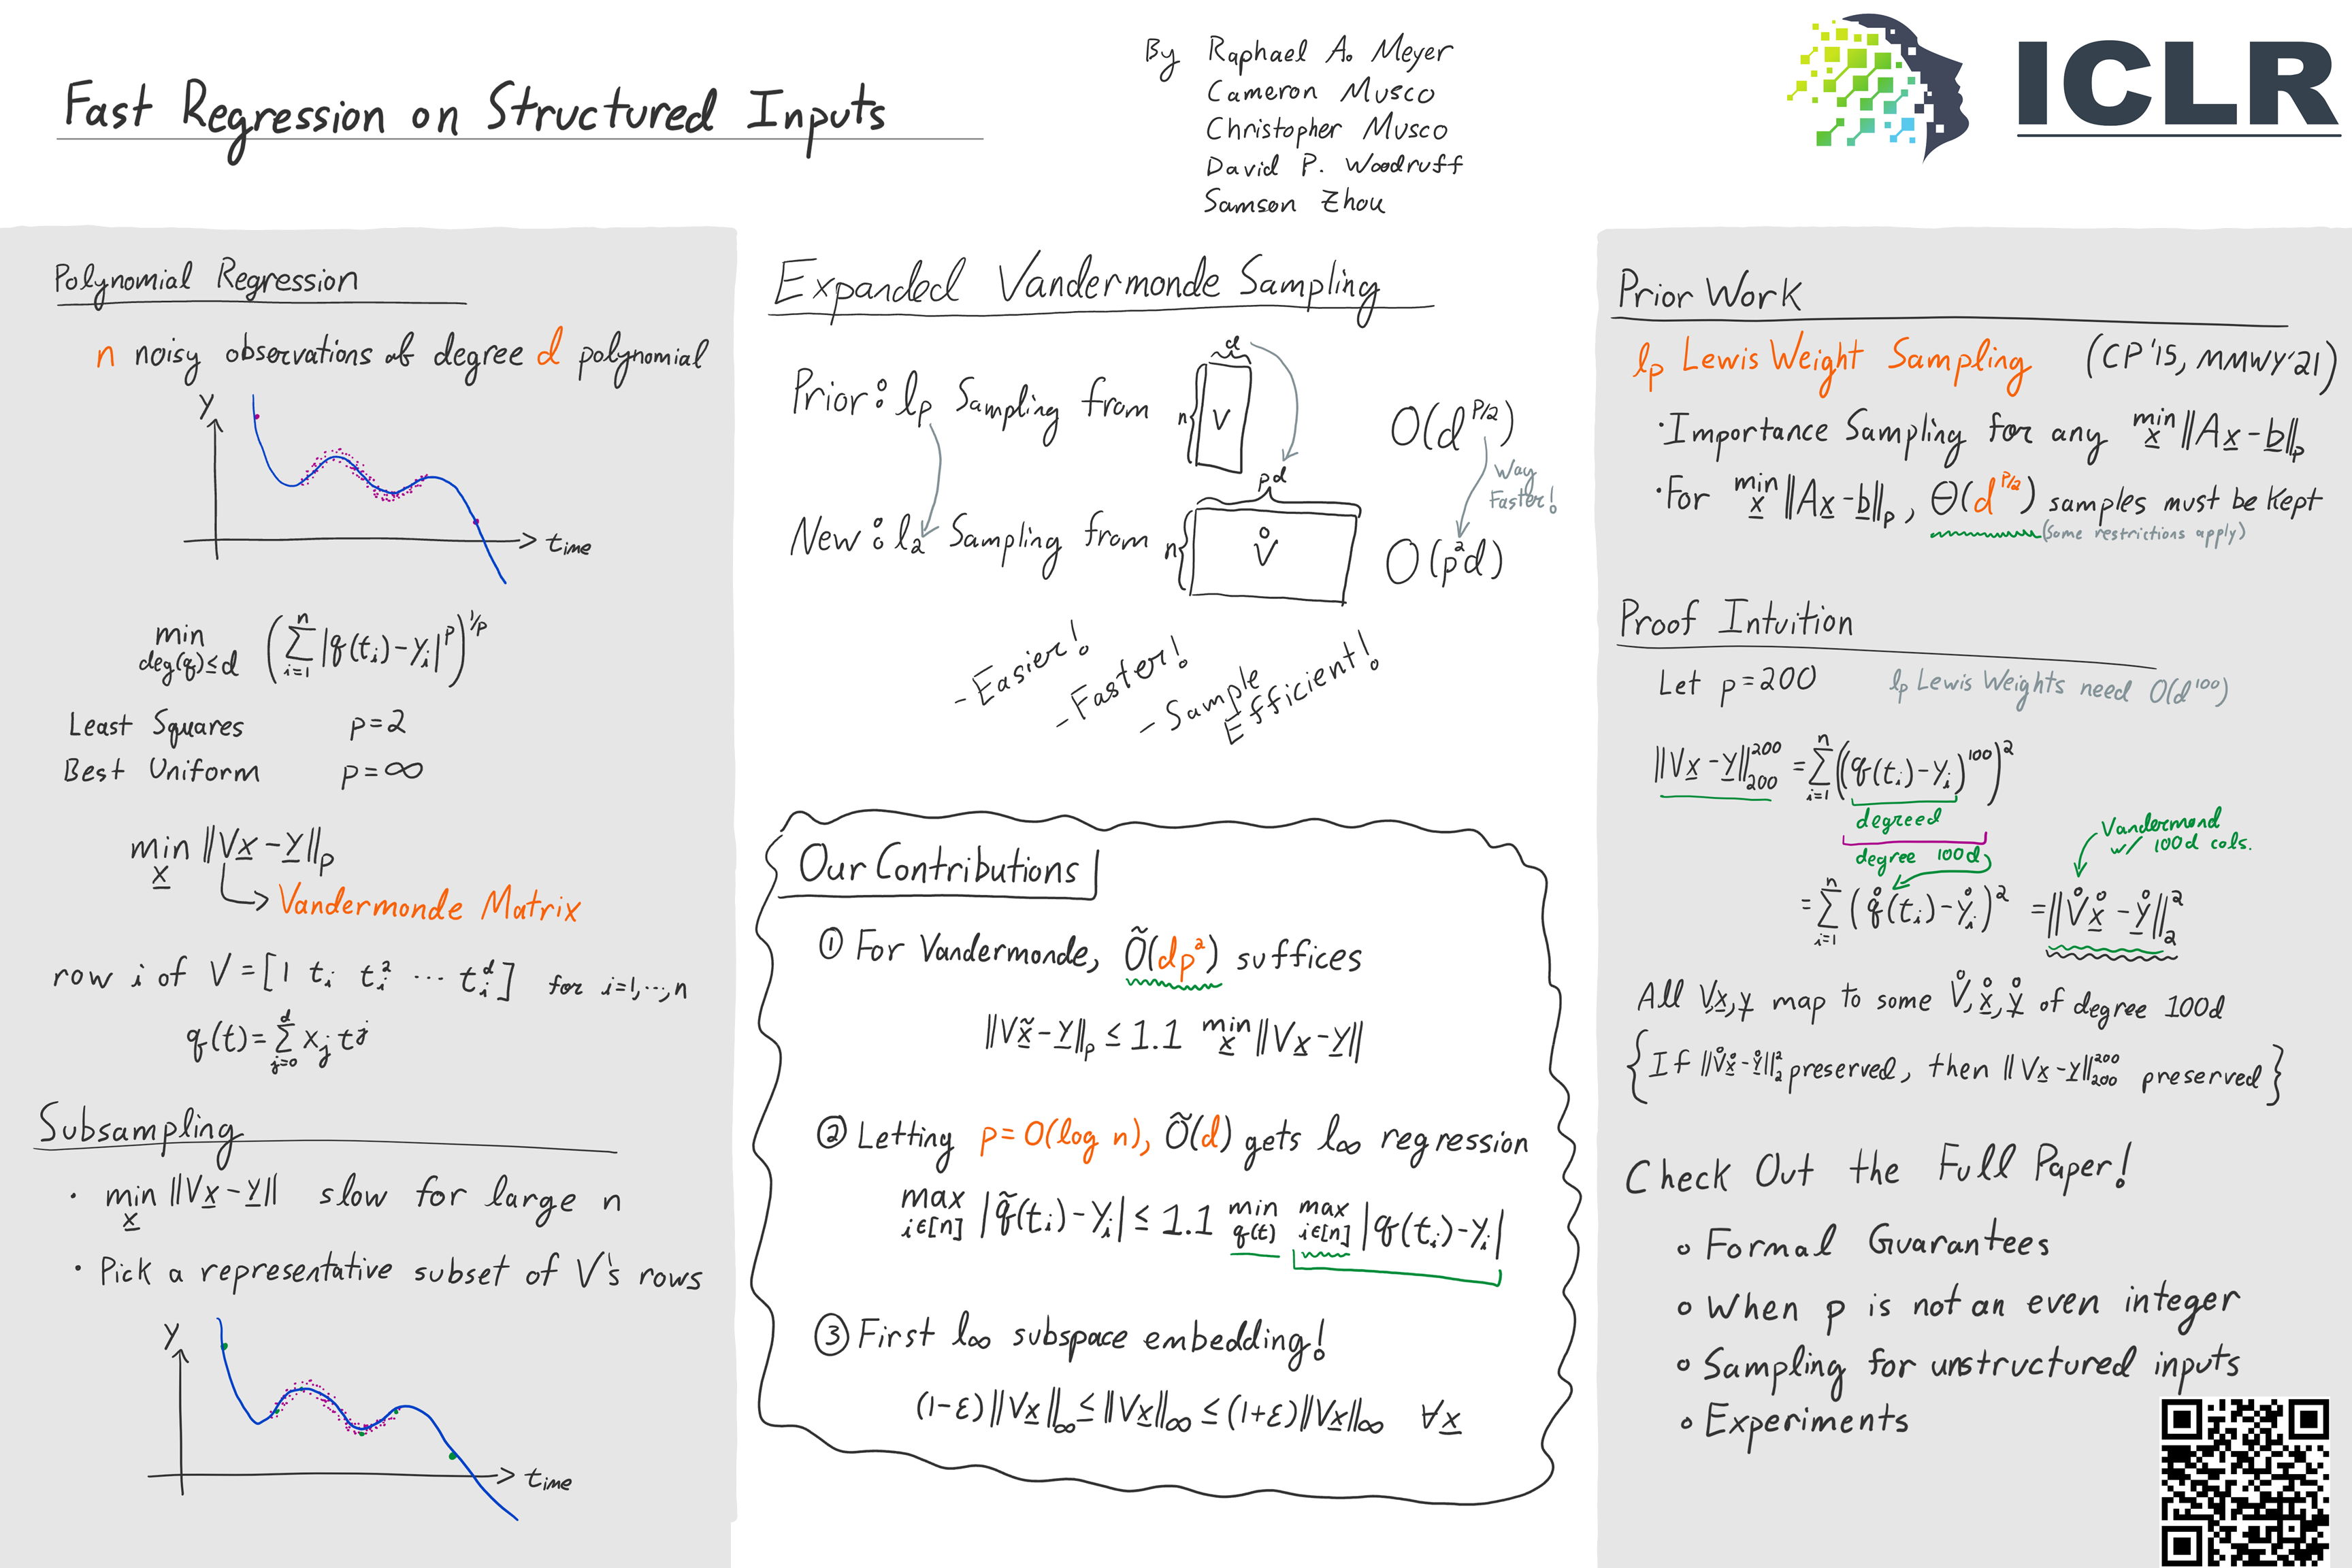 Fast Regression on Structured Inputs
By Raphael A. Meyer
Cameron Musco
Christopher Musco
David P. Woodruff
Samson Zhou
ICLR
Polynomial Regression
n noisy observations of degree d polynomial
y
time
min deg(q)≤d (∑_{i=1}^n |q(t_i)-y_i|^p)^{1/p}
Least Squares p=2
Best Uniform p=∞
min_x ||Vx-y||_p
Vandermonde Matrix
row i of V = [1 t_i t_i^2 ... t_i^d] for i=1,...,n
q(t)=∑_{j=0}^d x_j t^j
Subsampling
· min_x ||Vx-y|| slow for large n
· Pick a representative subset of V's rows
y
time
Expanded Vandermonde Sampling
d
Prior: l_p Sampling from n{ V O(d^{p/2})
Way
Faster!
pd
New: l_2 Sampling from n{ V̊ O(p^2d)
- Easier!
- Faster!
- Sample
Efficient!
Our Contributions
① For Vandermonde, Õ(dp^2) suffices
||Vx̃-y||_p ≤ 1.1 min_x ||Vx-y||
② Letting p=O(log n), Õ(d) gets l_∞ regression
max_{i∈[n]} |q̃(t_i)-y_i| ≤ 1.1 min_{q(t)} max_{i∈[n]} |q(t_i)-y_i|
③ First l_∞ subspace embedding!
(1-ε)||Vx||_∞ ≤ ||Vx||_∞ ≤ (1+ε)||Vx||_∞ ∀x
Prior Work
l_p Lewis Weight Sampling (CP'15, MMWY'21)
· Importance Sampling for any min_x ||Ax-b||_p
· For min_x ||Ax-b||_p, Θ(d^{p/2}) samples must be kept
(some restrictions apply)
Proof Intuition
Let p=200 l_p Lewis Weights need O(d^{100})
||Vx-y||_{200}^{200} = ∑_{i=1}^n ((q(t_i)-y_i)^{100})^2
degree d
degree 100d
Vandermond
w/ 100d cols.
= ∑_{i=1}^n (q̊(t_i)-ẙ_i)^2 = ||V̊x̊-ẙ||_2^2
All V,x,y map to some V̊,x̊,ẙ of degree 100d
{If ||V̊x̊-ẙ||_2^2 preserved, then ||Vx-y||_{200}^{200} preserved}
Check Out the Full Paper!
o Formal Guarantees
o When p is not an even integer
o Sampling for unstructured inputs
o Experiments